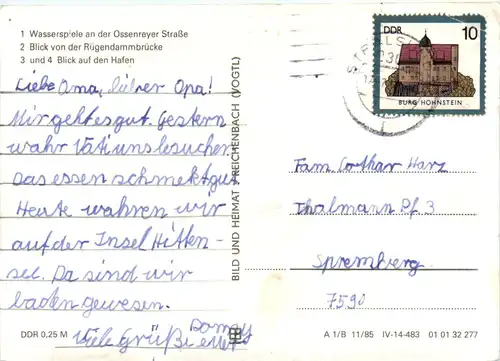 1 Wasserspiele an der Ossenreyer Straße
2 Blick von der Rügendammbrücke
3 und 4 Blick auf den Hafen
Liebe Oma, lieber Opa!
Mir geht es gut. Gestern
wahr Vati uns besuchen
Das essen schmekt gut
Heute wahren wir
auf der Insel Hitten-
see. Da sind wir
baden gewesen.
Viele Grüße
DDR 0,25 M
BILD UND HEIMAT REICHENBACH (VOGTL)
DDR 10
BURG HOHNSTEIN
STRALS
Fam. Lothar Harz
Thälmann Pl 3
Spremberg
7590
A 1/B 11/85 IV-14-483 01 01 32 277